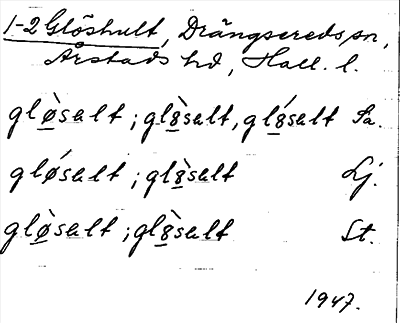 1-2 Glöshult, Drängsereds sn,
Årstads hd, Hall. l.
glø̀salt; gl8̀salt, gl8́salt Sa.
glǿsalt; gl8̀salt Lj.
glø̀salt; gl8̀salt St.
1947.